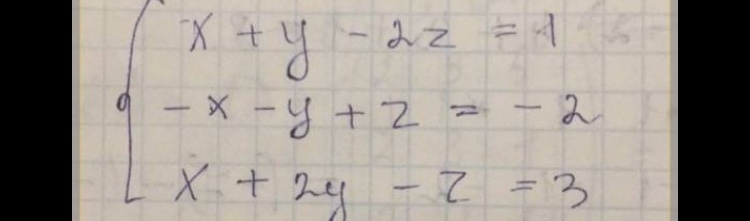 x + y - 2z = 1
- x - y + z = - 2
x + 2y - z = 3